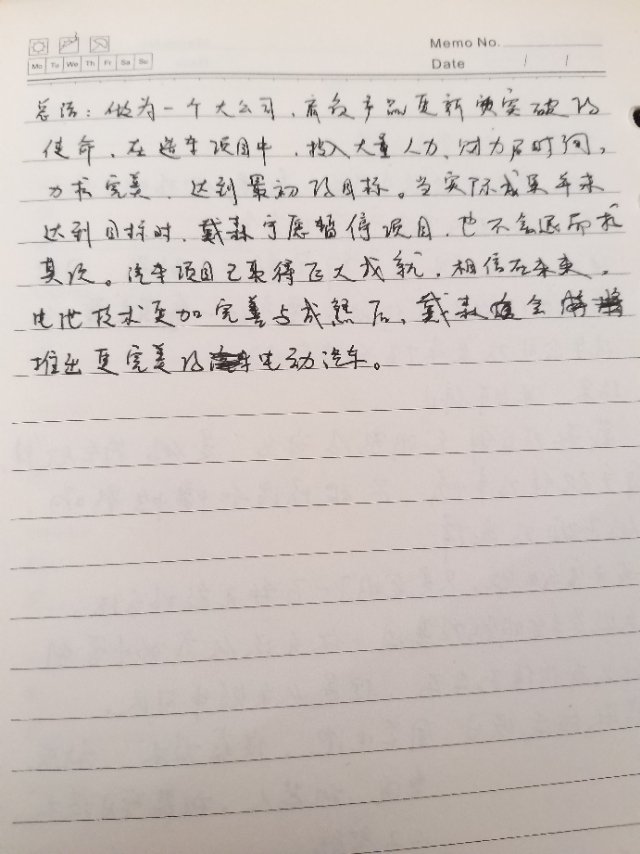 Memo No.
Mo Tu We Th Fr Sa Su
Date / /
总结:做为一个大公司,肩负产品更新须突破的
使命,在造车项目中,投入大量人力、财力及时间,
力求完美,达到最初的目标。当实际成果并未
达到目标时,戴森宁愿暂停项目,也不会退而求
其次。汽车项目已取得巨大成就,相信在未来,
电池技术更加完善与成熟后,戴森会
推出更完美的电动汽车。